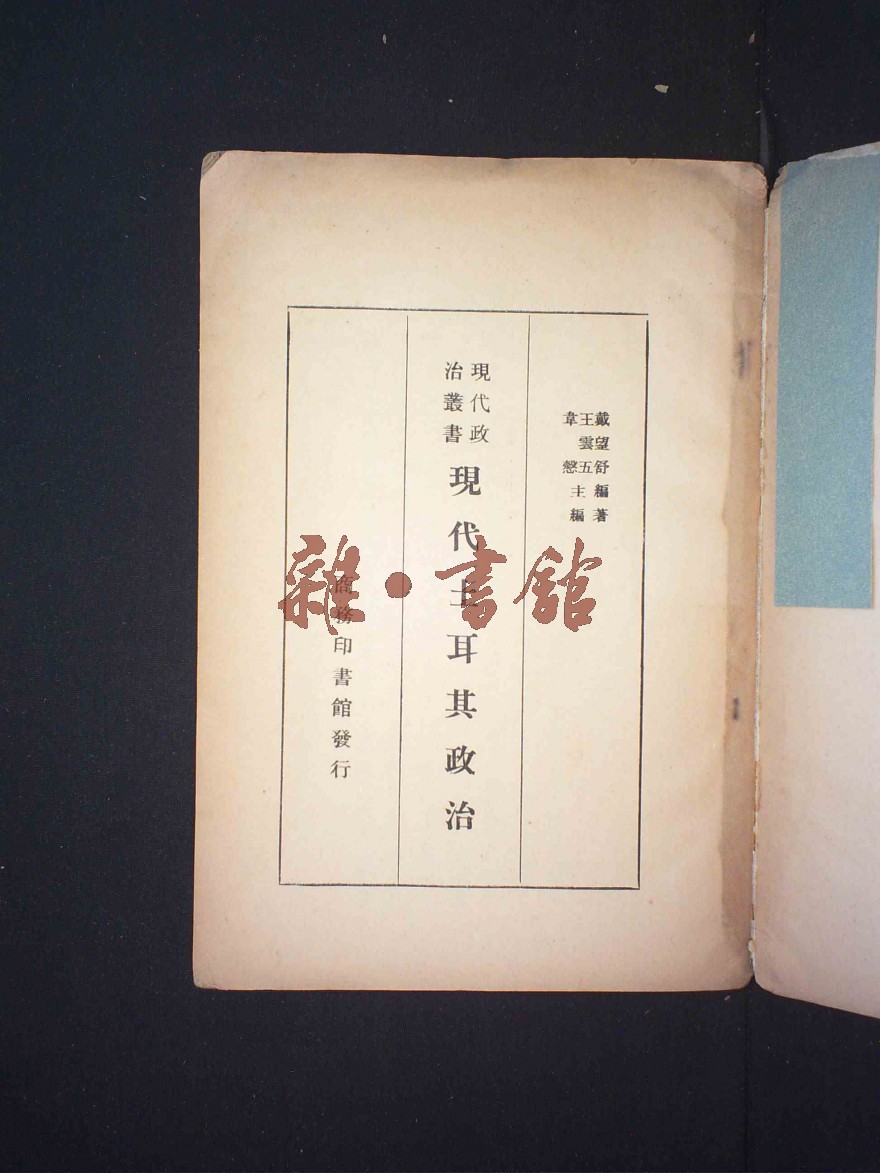 戴望舒編著
王雲五主編
韋慤
現代政治叢書
現代土耳其政治
商務印書館發行
雜•書館